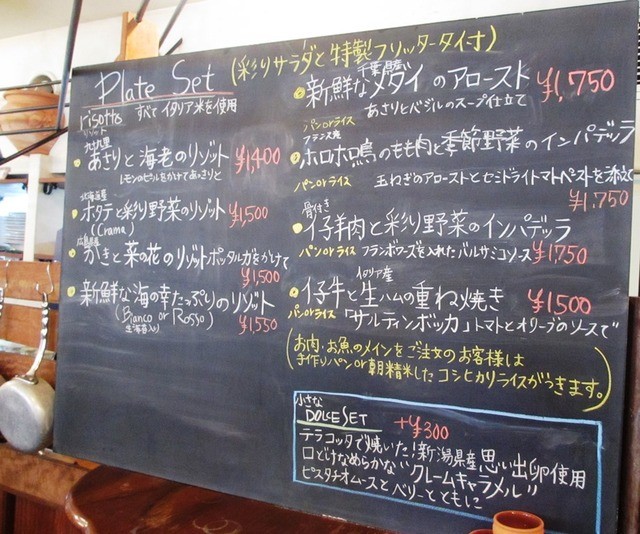 Plate Set (彩りサラダと特製フリッタータイ付)
risotto すべてイタリア米を使用
リゾット
あさりと海老のリゾット ¥1,400
レモンのピールをかけてあっさりと
北海道産
ホタテと彩り野菜のリゾット ¥1,500
(Crama)
広島県産
かきと菜の花のリゾットボッタルガをかけて
¥1,500
新鮮な海の幸たっぷりのリゾット
(Bianco or Rosso) ¥1,550
生海苔入り
千葉県産
新鮮なメダイのアロースト ¥1,750
あさりとバジルのスープ仕立て
パンorライス
フランス産
ホロホロ鳥のもも肉と季節野菜のインパデッラ
パンorライス 玉ねぎのアローストとセミドライトマトペストを添えて
¥1,750
骨付き
仔羊肉と彩り野菜のインパデッラ
パンorライス フランボワーズを入れたバルサミコソース ¥1,750
イタリア産
仔牛と生ハムの重ね焼き ¥1,500
パンorライス 「サルティンボッカ」トマトとオリーブのソースで
(お肉・お魚のメインをご注文のお客様は
手作りパンor朝精米したコシヒカリライスがつきます。)
小さな
DOLCE SET +¥300
テラコッタで焼いた!新潟県産思い出卵使用
口どけなめらかな"クレームキャラメル"
ピスタチオムースとベリーとともに